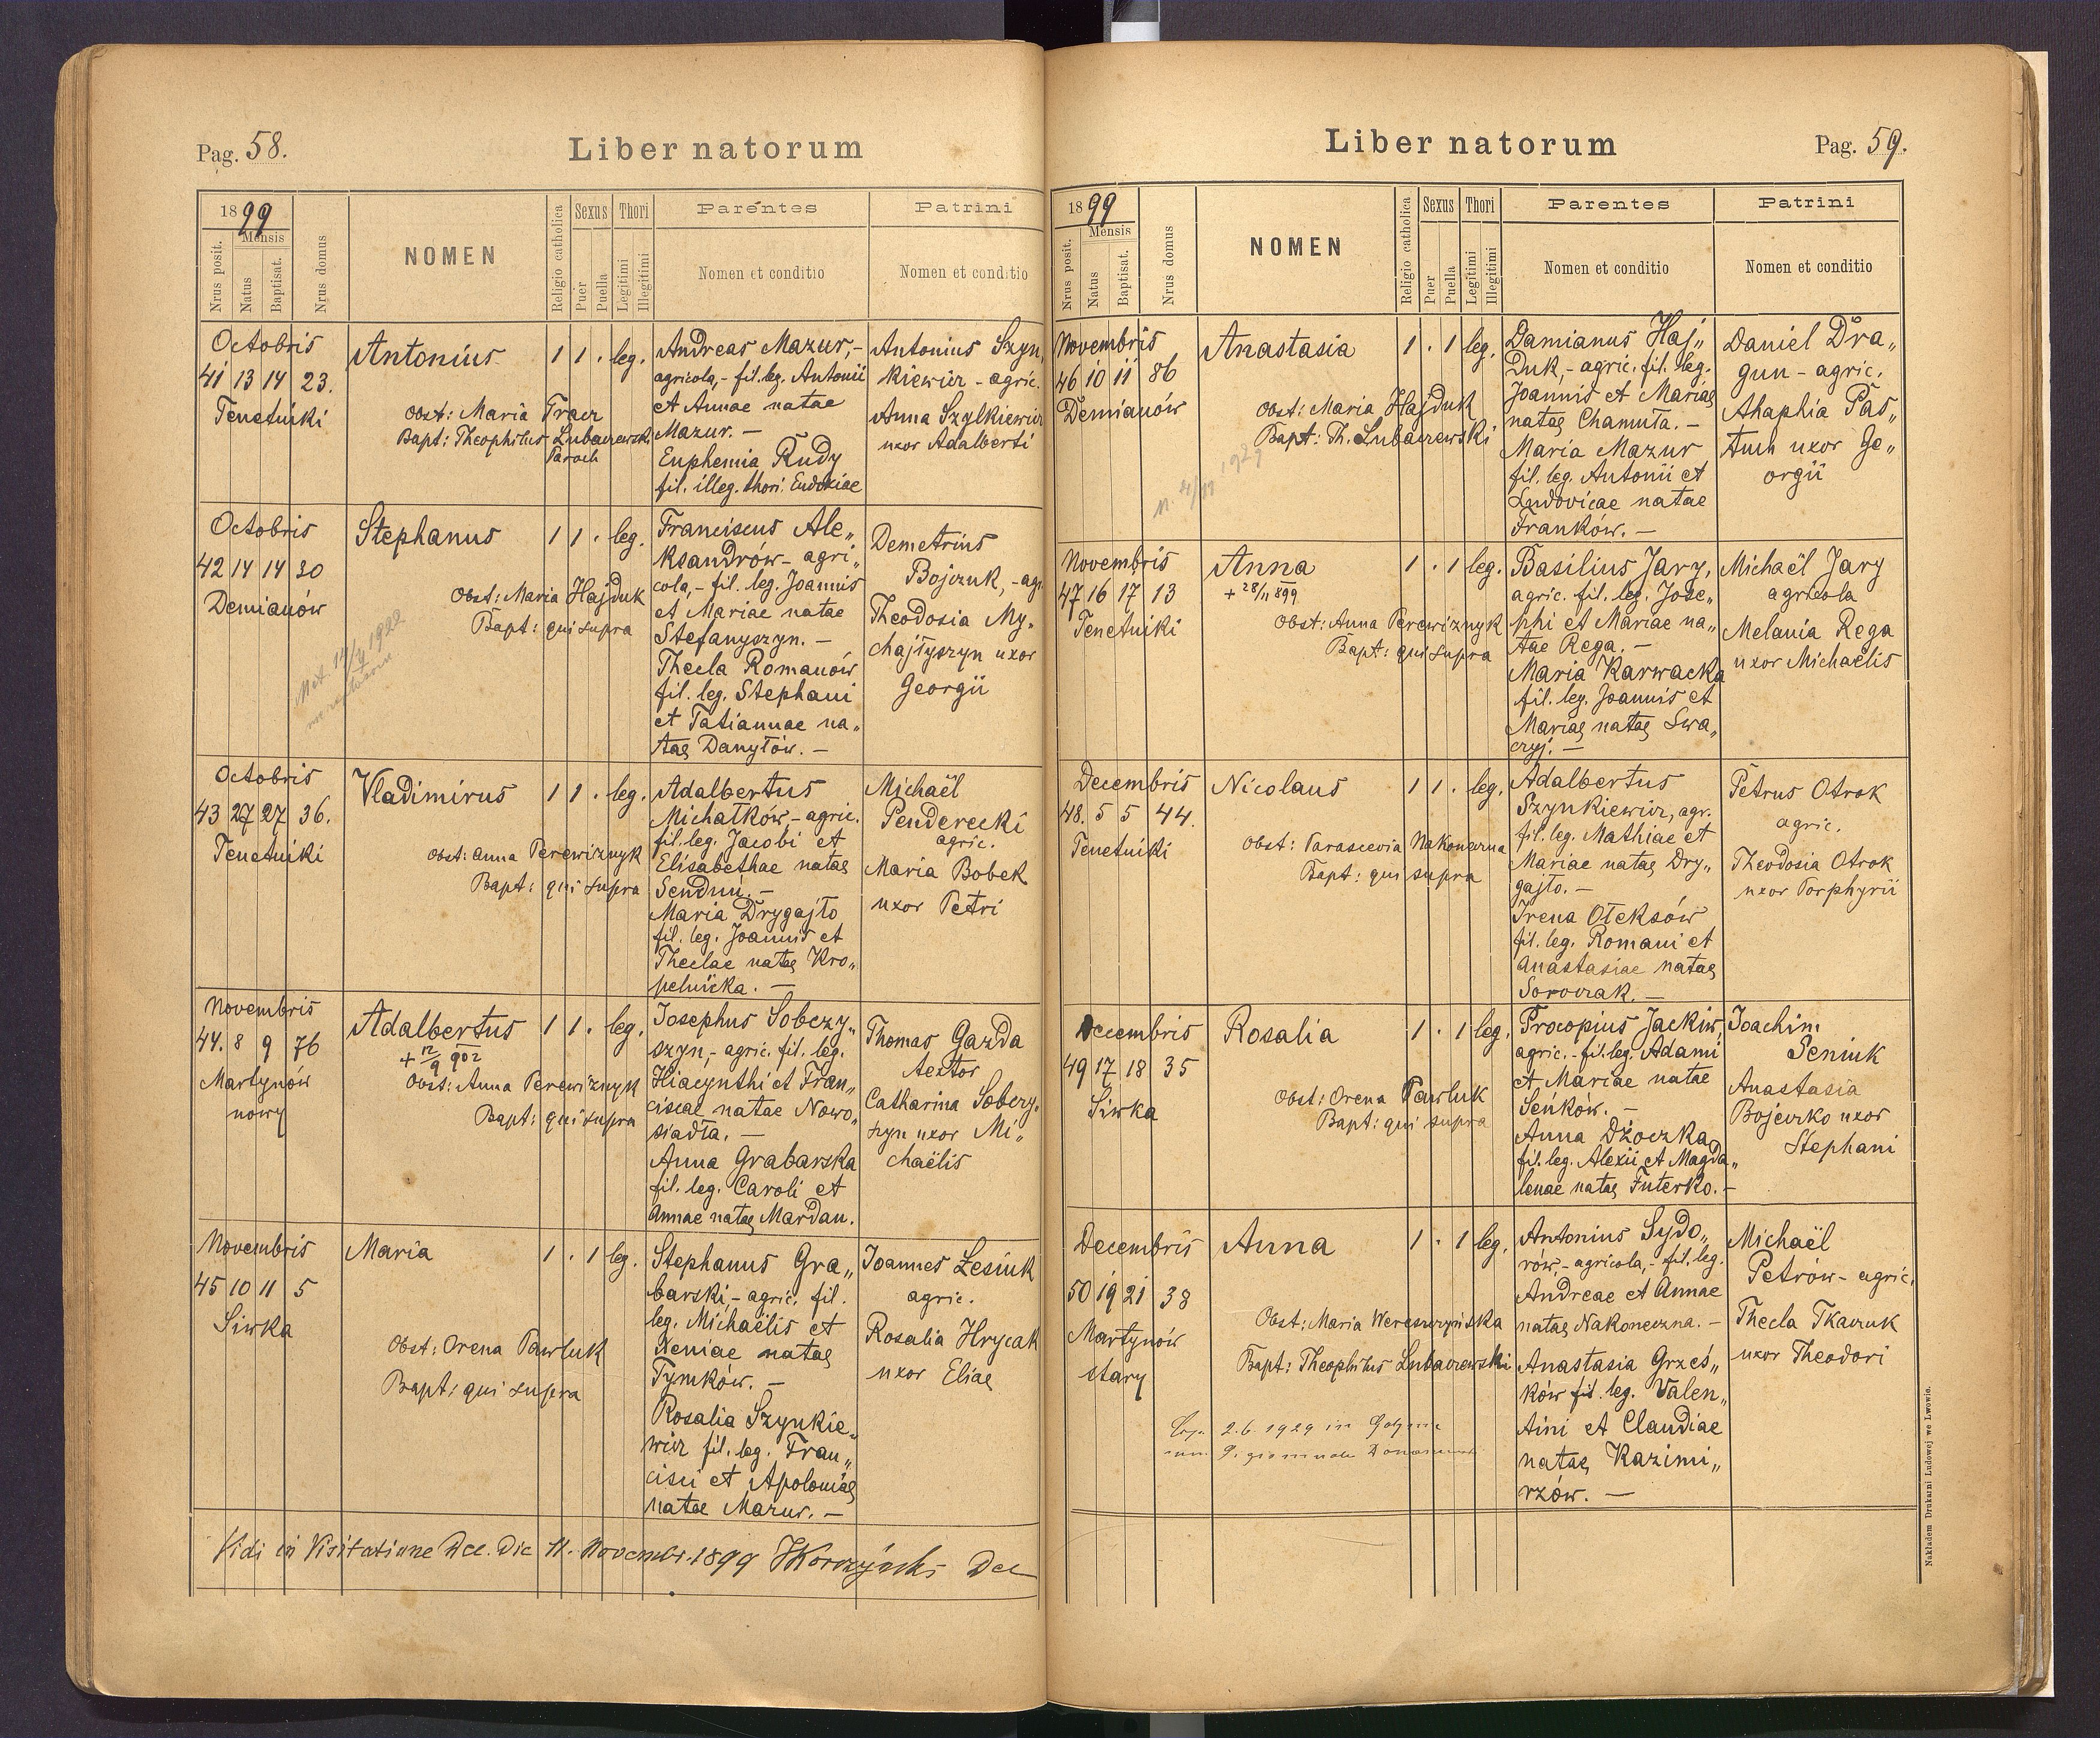 Pag. 58.
Liber natorum
1899
Mensis
Nrus posit.
Natus
Baptisat.
Nrus domus
NOMEN
Religio catholica
Sexus
Puer
Puella
Thori
Legitimi
Illegitimi
Parentes
Nomen et conditio
Patrini
Nomen et conditio
Octobris
41 13 14 23.
Tenetniki
Antonius
1 1 . leg.
Obst: Maria Tracz
Bapt: Theophilus Lubaczewski
Paroch
Andreas Mazur,-
agricola,- fil. leg. Antonii
et Annae natae
Mazur. —
Euphemia Rudy
fil. illeg. thori Eudokiae
Antonius Szyn„
kiewicz - agric.
Anna Szylkiewicz
uxor Adalberti
Octobris
42 14 14 30
Demianów
Stephanus
1 1 . leg.
Obst: Maria Hajduk
Bapt: qui supra
Franciscus Ale„
ksandrów - agri„
cola,- fil. leg. Joannis
et Mariae natae
Stefanyszyn. —
Thecla Romanów
fil. leg. Stephani
et Tatiannae na„
tae Danyłów. —
Demetrius
Bojczuk, - agr.
Theodosia My„
chajłyszyn uxor
Georgii
Octobris
43 27 27 36.
Tenetniki
Vladimirus
1 1 . leg.
Obst: Anna Perewiznyk
Bapt: qui supra
Adalbertus
Michałków,- agric.
fil. leg. Jacobi et
Elisabethae natae
Senduń. —
Maria Drygajło
fil. leg. Joannis et
Theclae natae Kro„
pelnicka. —
Michaël
Penderecki
agric.
Maria Bobek
uxor Petri
Novembris
44. 8 9 76
Martynów
nowy
Adalbertus
+ 12/9 902
1 1 . leg.
Obst: Anna Perewiznyk
Bapt: qui supra
Josephus Sobczy„
szyn,- agric. fil. leg.
Hiacynthi et Fran„
ciscae natae Nowo„
siadła. —
Anna Grabarska
fil. leg. Caroli et
Annae natae Mardan.
Thomas Gazda
textor
Catharina Sobczy„
szyn uxor Mi„
chaëlis
Novembris
45 10 11 5
Siwka
Maria
1 . 1 leg.
Obst: Orena Pawluk
Bapt: qui supra
Stephanus Gra„
barski,- agric. fil.
leg. Michaëlis et
Xeniae natae
Tymków. —
Rosalia Szynkie„
wicz fil. leg. Fran„
cisci et Apoloniae
natae Mazur. —
Joannes Lesiuk
agric.
Rosalia Hrycak
uxor Eliae
Vidi in Visitatione Dec. Die 11. Novembr. 1899 JKorczyński Dec
Liber natorum
Pag. 59.
1899
Mensis
Nrus posit.
Natus
Baptisat.
Nrus domus
NOMEN
Religio catholica
Sexus
Puer
Puella
Thori
Legitimi
Illegitimi
Parentes
Nomen et conditio
Patrini
Nomen et conditio
Novembris
46 10 11 86
Demianów
Anastasia
1 . 1 leg.
Obst: Maria Hajduk
Bapt: Th. Lubaczewski
1929
Damianus Haj„
duk,- agric. fil. leg.
Joannis et Mariae
natae Chamuta. —
Maria Mazur
fil. leg. Antonii et
Ludovicae natae
Franków. —
Daniel Dra„
gun - agric.
Ahaphia Pas„
tuch uxor Ge„
orgii
Novembris
47 16 17 13
Tenetniki
Anna
+ 28/11 899
1 . 1 leg.
Obst: Anna Perewiznyk
Bapt: qui supra
Basilius Jary,
agric. fil. leg. Jose„
phi et Mariae na„
tae Rega. —
Maria Karwacka
fil. leg. Joannis et
Mariae natae Swa„
czyj. —
Michaël Jary
agricola
Melania Rega
uxor Michaëlis
Decembris
48. 5 5 44.
Tenetniki
Nicolaus
1 1 . leg.
Obst: Parascevia Nakoneczna
Bapt: qui supra
Adalbertus
Szynkiewicz, agr.
fil. leg. Mathiae et
Mariae natae Dry„
gajło. —
Irena Ołeksów
fil. leg. Romani et
Anastasiae natae
Soroczak. —
Petrus Otrok
agric.
Theodosia Otrok
uxor Porphyrii
Decembris
49 17 18 35
Siwka
Rosalia
1 . 1 leg.
Obst: Orena Pawluk
Bapt: qui supra
Procopius Jackiw,
agric. - fil. leg. Adami
et Mariae natae
Seńków. —
Anna Dżoczka
fil. leg. Alexii et Magda„
lenae natae Futerko. —
Joachim
Seniuk
Anastasia
Bojeczko uxor
Stephani
Decembris
50 19 21 38
Martynów
stary
Anna
1 . 1 leg.
Obst: Maria Wereszczyńska
Bapt: Theophilus Lubaczewski
2.6 1929 in
Antonius Sydo„
rów,- agricola,- fil. leg.
Andreae et Annae
natae Nakoneczna. —
Anastasia Grześ„
ków fil. leg. Valen„
tini et Claudiae
natae Kazimi„
rzów. —
Michaël
Petrów - agric.
Thecla Tkaczuk
uxor Theodori
Nakładem Drukarni Ludowej we Lwowie.